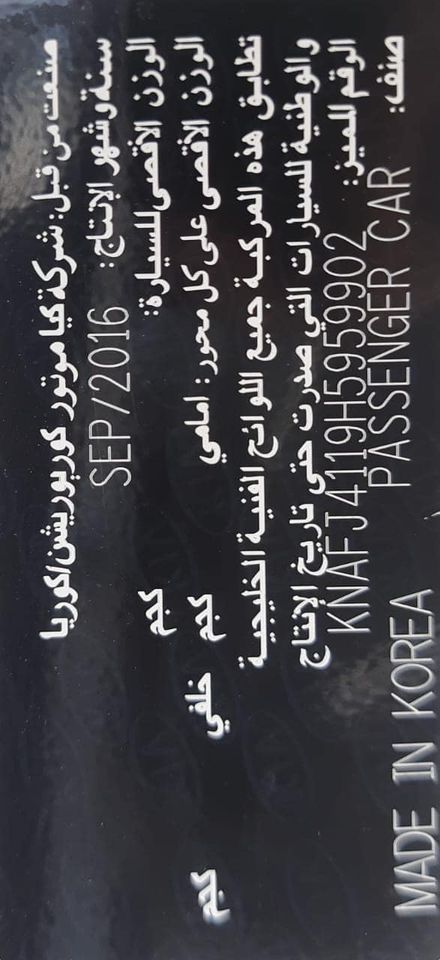 صنعت من قبل: شركة كيا موتور كوربوريشن/كوريا
سنة وشهر الإنتاج: SEP/2016
الوزن الأقصى للسيارة: كجم
الوزن الأقصى على كل محور: امامي كجم خلفي كجم
تطابق هذه المركبة جميع اللوائح الفنية الخليجية
والوطنية للسيارات التي صدرت حتى تاريخ الإنتاج
الرقم المميز: KNAFJ4119H5959902
صنف: PASSENGER CAR
MADE IN KOREA